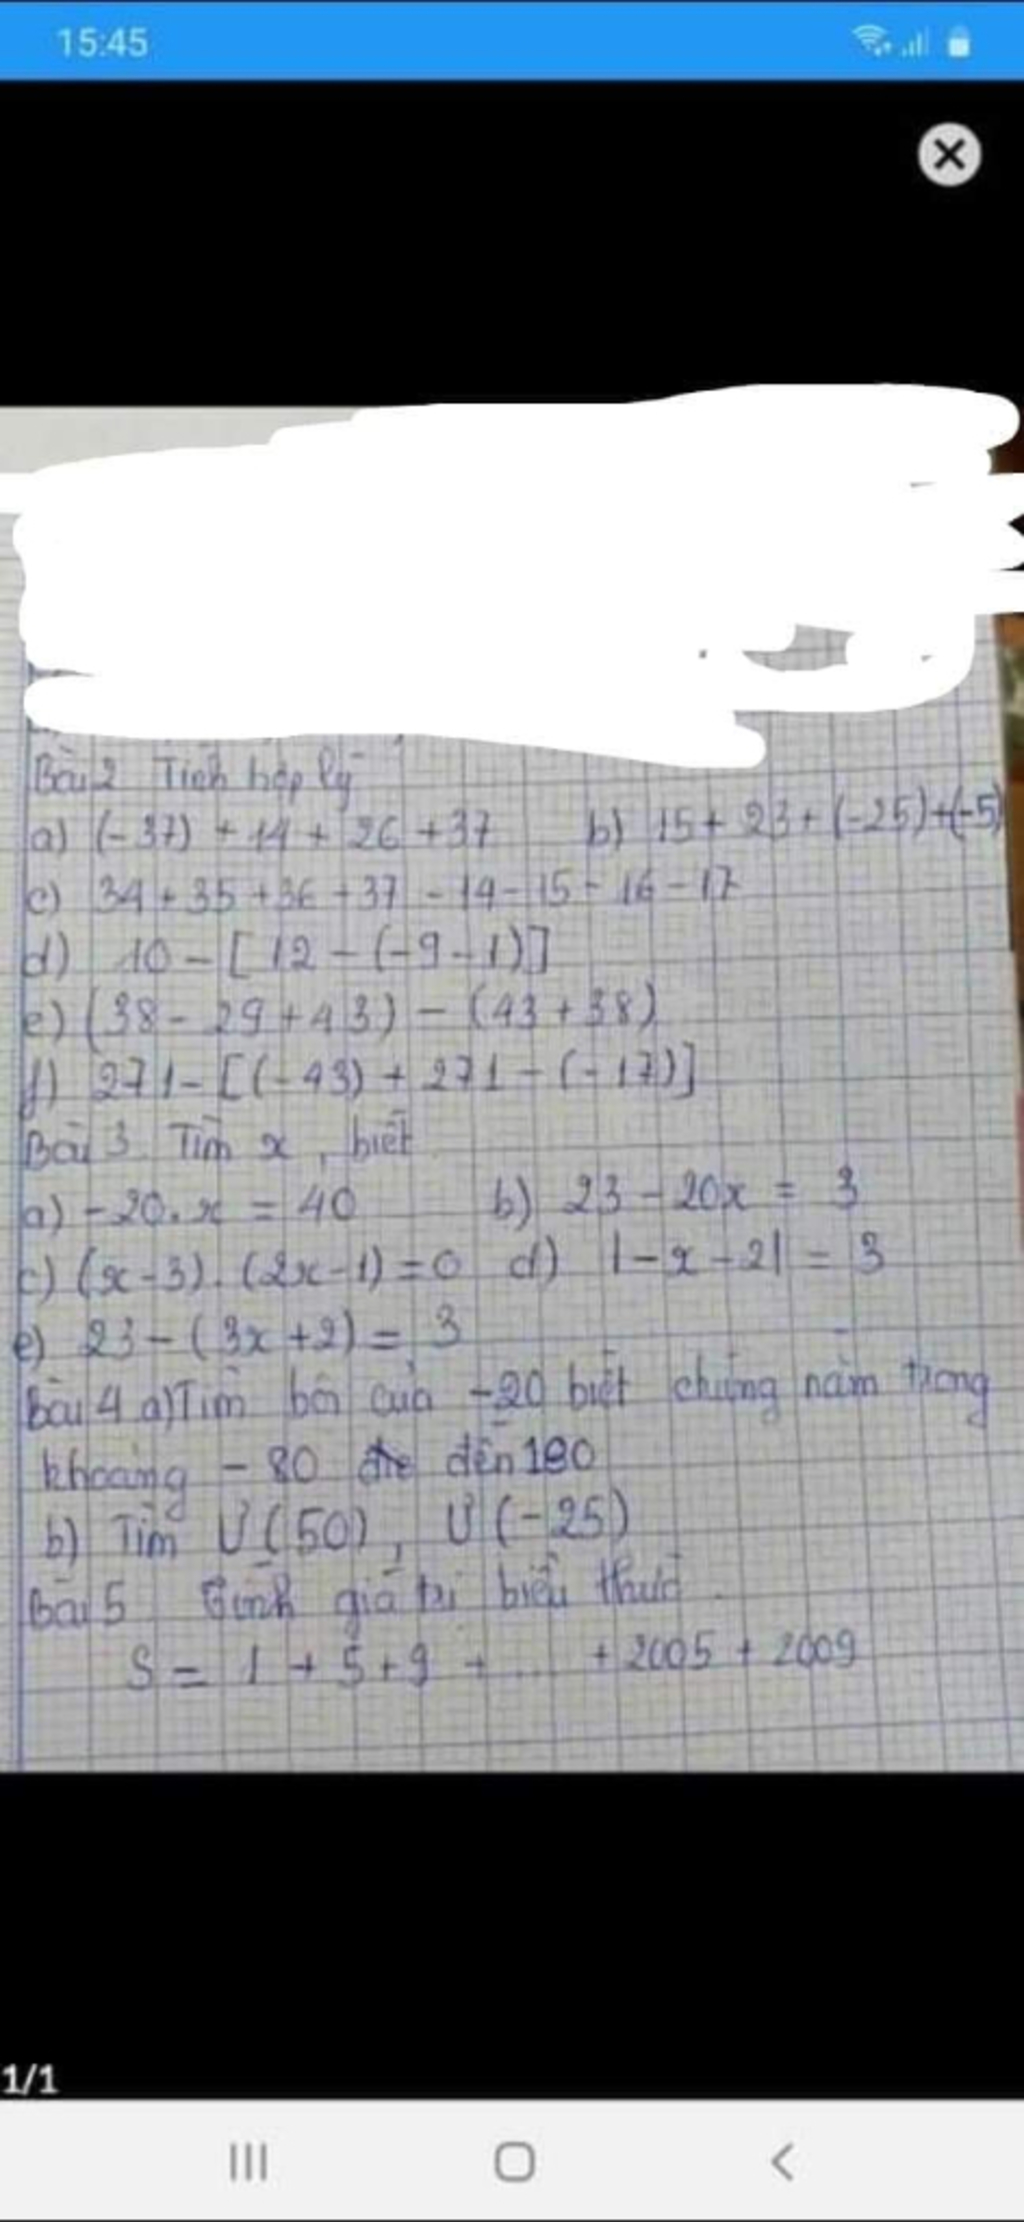 15:45
Bài 2 Tính hợp lý
a) (-37) + 14 + 26 + 37 b) 15 + 23 + (-25) + (-5)
c) 34 + 35 + 36 + 37 - 14 - 15 - 16 - 17
d) 10 - [12 - (-9 - 1)]
e) (38 - 29 + 43) - (43 + 38)
f) 271 - [(-43) + 271 - (-17)]
Bài 3 Tìm x, biết
a) -20.x = 40 b) 23 - 20x = 3
c) (x-3).(2x-1)=0 d) |-x-2| = 3
e) 23 - (3x+2) = 3
Bài 4 a) Tìm bôi của -20 biết chúng nằm trong
khoảng - 80 đến 180
b) Tìm Ư(50), Ư(-25)
Bài 5 Tính giá trị biểu thức
S = 1 + 5 + 9 + .... + 2005 + 2009
1/1